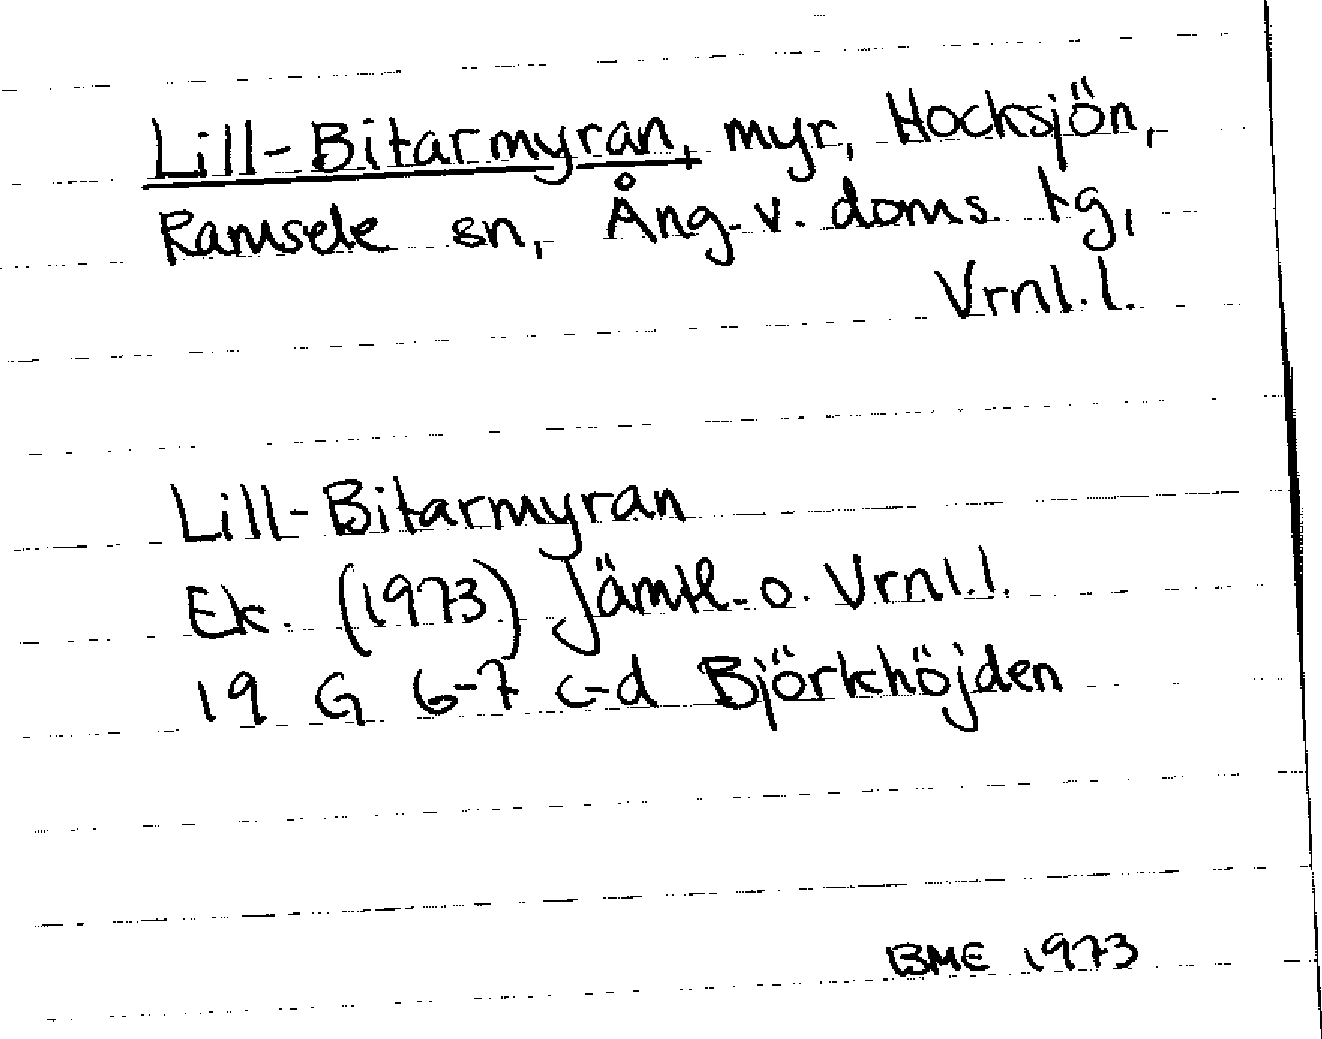 Lill-Bitarmyran, myr, Hocksjön,
Ramsele sn, Ång. v. doms. tg,
Vrnl.l.
Lill-Bitarmyran
Ek. (1973) Jämtl. o. Vrnl.l.
19 G 6-7 c-d Björkhöjden
BME 1973